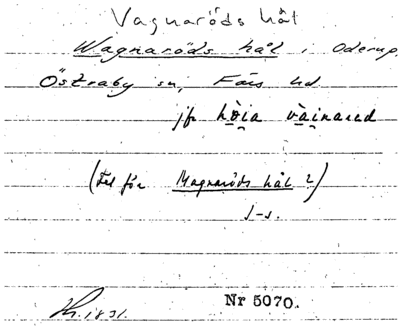 Vagnaröds hål
Wagnaröds hål i Oderup,
Östraby sn, Färs hd
jfr höia vainared
(fel för Magnaröds hål ?)
J-s.
1831. Nr 5070.